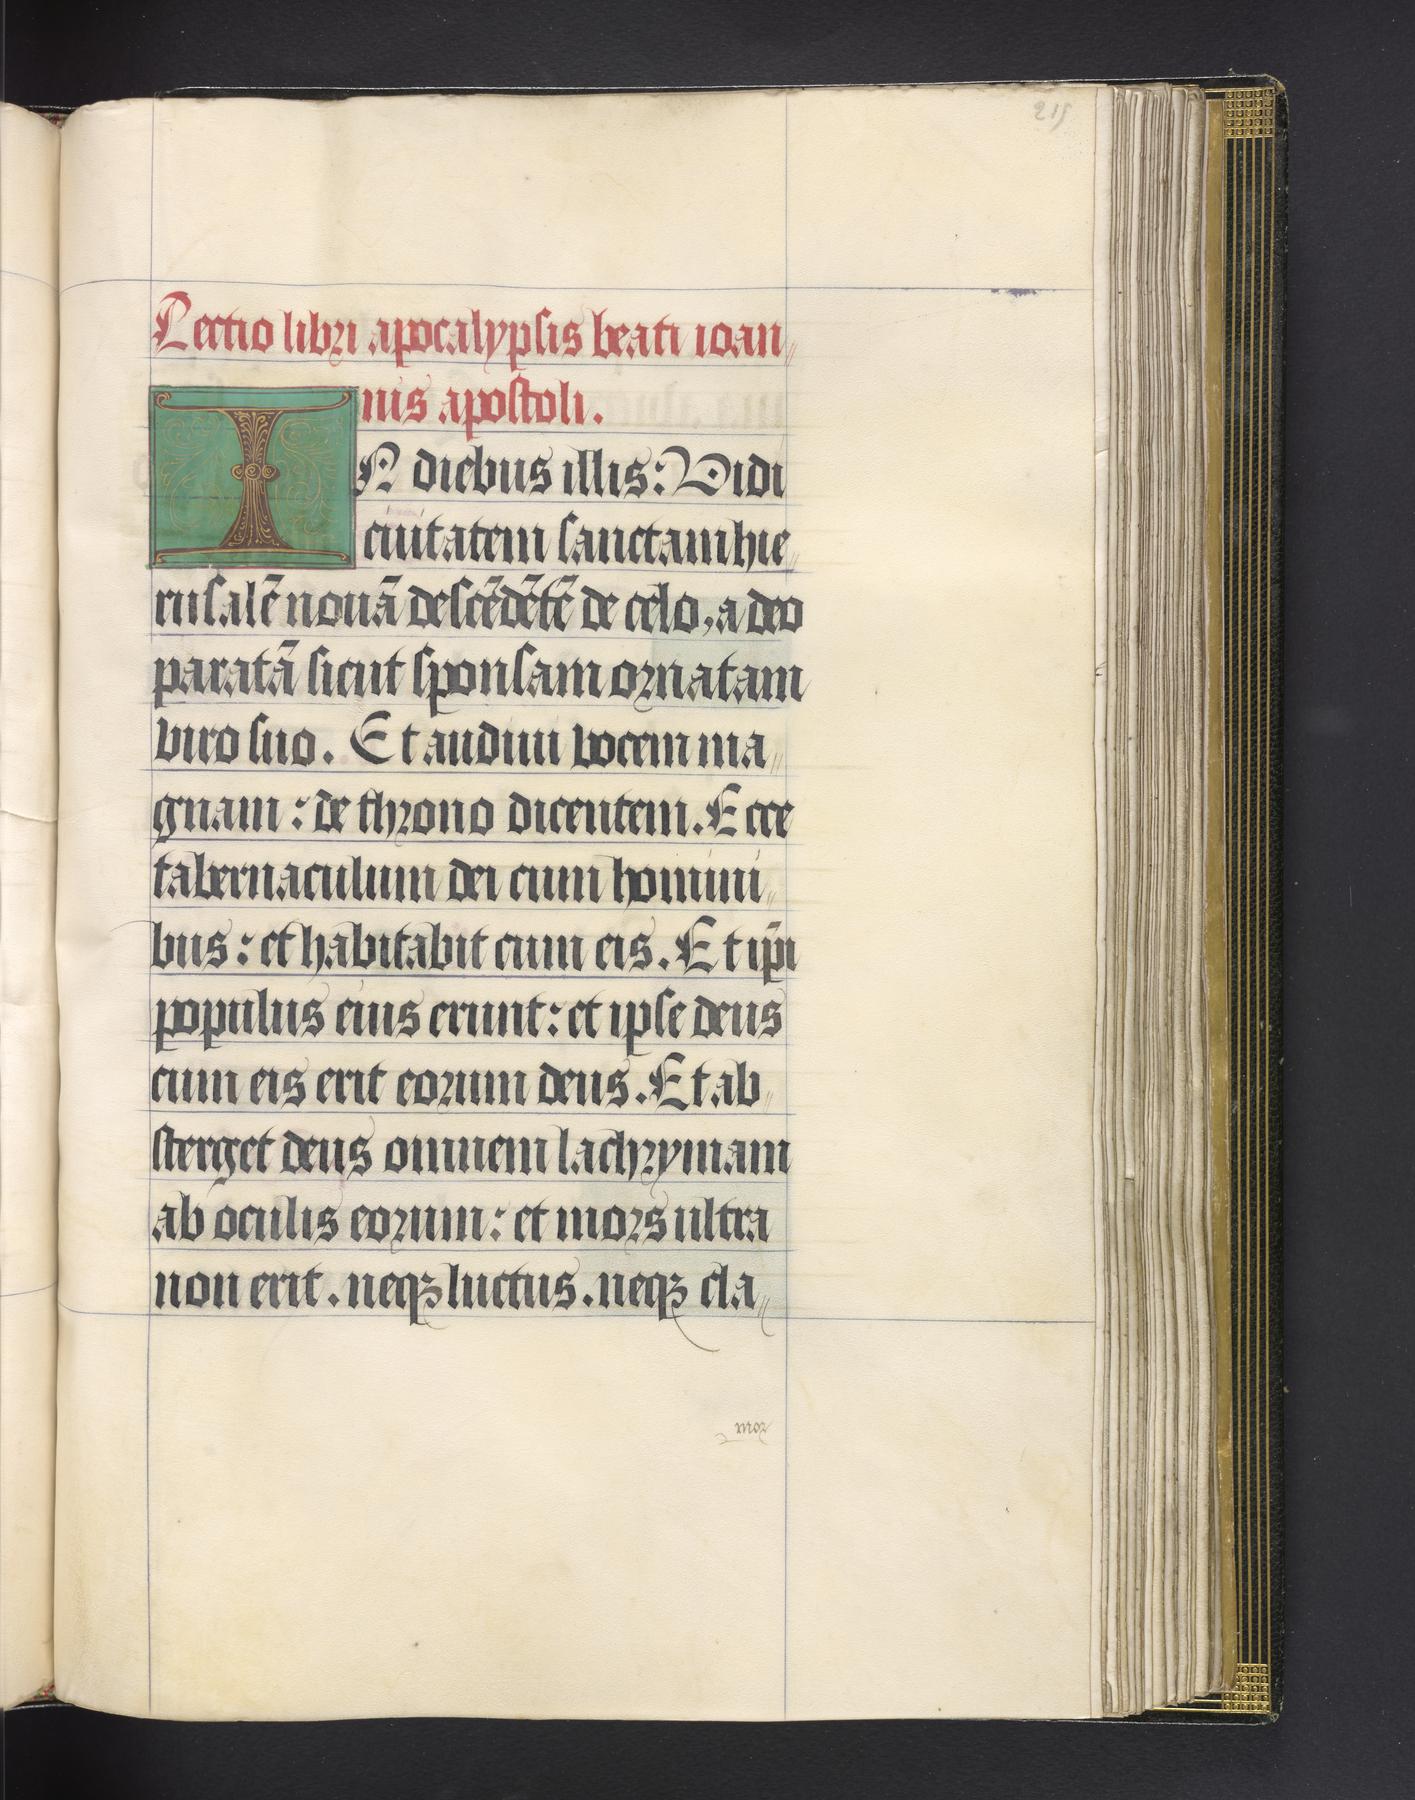 215
Lectio libri apocalypsis beati ioan„
nis apostoli.
IN diebus illis: Vidi
ciuitatem sanctam hie„
rusalē nouā descēdētē de celo, a deo
paratā sicut sponsam ornatam
viro suo. Et audiui vocem ma„
gnam: de throno dicentem. Ecce
tabernaculum dei cum homini„
bus: et habitabit cum eis. Et ip̄i
populus eius erunt: et ipse deus
cum eis erit eorum deus. Et ab„
sterget deus omnem lachrymam
ab oculis eorum: et mors ultra
non erit. neqꝫ luctus. neqꝫ cla„
mor